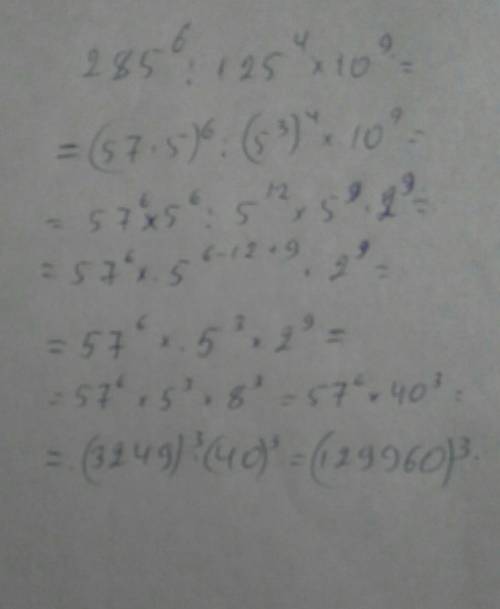 285⁶ : 125⁴ × 10⁹ =
= (57 · 5)⁶ : (5³)⁴ × 10⁹ =
= 57⁶ × 5⁶ : 5¹² × 5⁹ · 2⁹ =
= 57⁶ × · 5⁶⁻¹²⁺⁹ · 2⁹ =
= 57⁶ × · 5³ × 2⁹ =
= 57⁶ × 5³ × 8³ = 57⁶ × 40³ =
= (3249)³ · (40)³ = (129960)³.